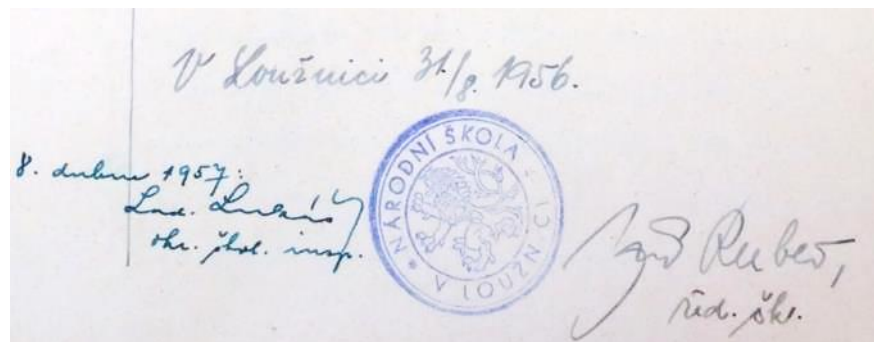 V Loužnici 31./8. 1956.
8. dubna 1957:
Lad. Lukáš
okr. škol. insp.
* NÁRODNÍ ŠKOLA - V LOUŽNICI
Rubeš,
řed. šk.